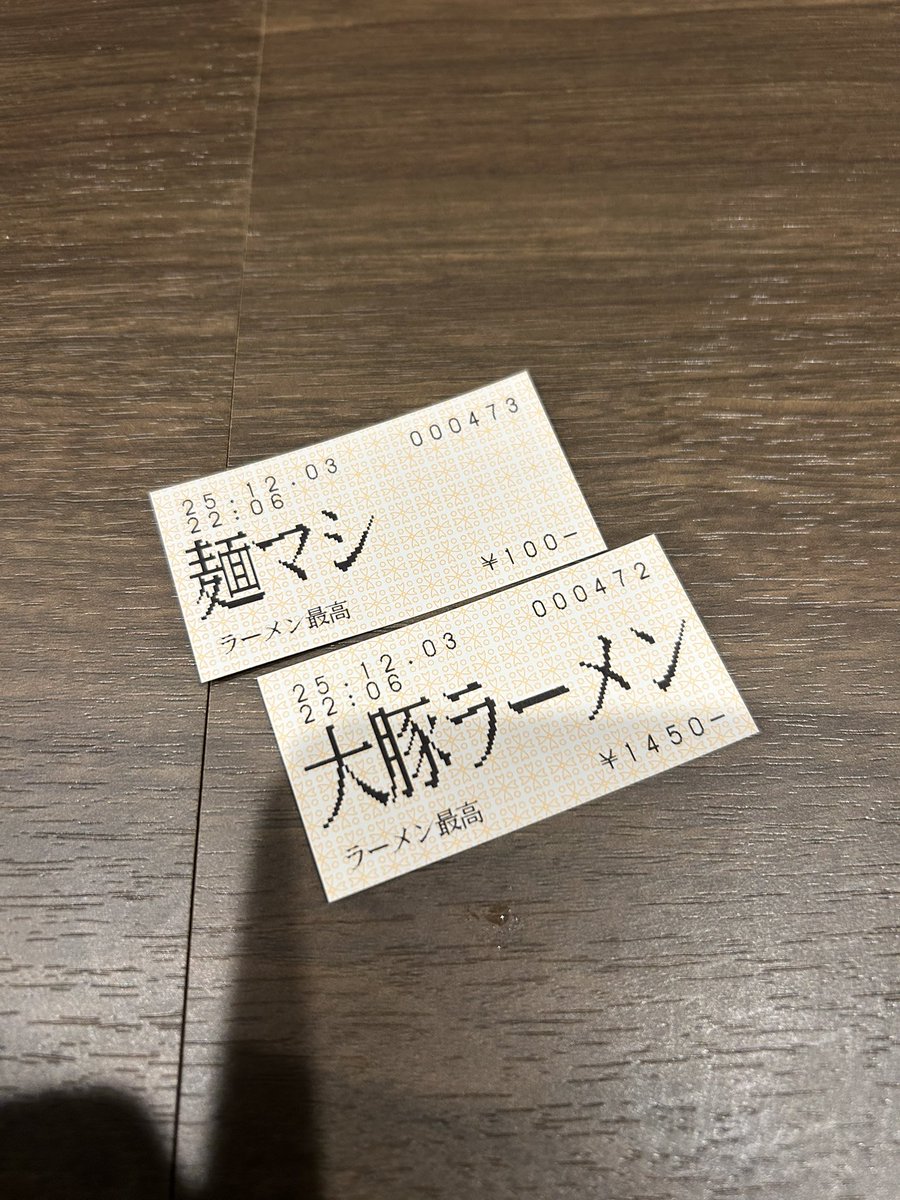 25.12.03 000473
22:06
麺マシ
¥100-
ラーメン最高
25.12.03 000472
22:06
大豚ラーメン
¥1450-
ラーメン最高